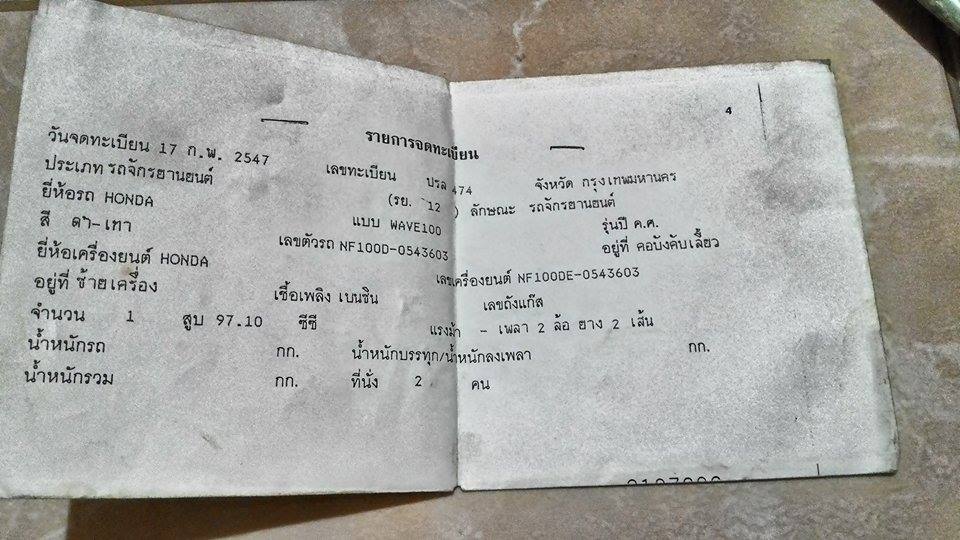 4
รายการจดทะเบียน
วันจดทะเบียน 17 ก.พ. 2547 เลขทะเบียน ปรล 474 จังหวัด กรุงเทพมหานคร
ประเภท รถจักรยานยนต์ (รย. 12 ) ลักษณะ รถจักรยานยนต์
ยี่ห้อรถ HONDA แบบ WAVE100 รุ่นปี ค.ศ.
สี ดำ-เทา เลขตัวรถ NF100D-0543603 อยู่ที่ คอบังคับเลี้ยว
ยี่ห้อเครื่องยนต์ HONDA เลขเครื่องยนต์ NF100DE-0543603
อยู่ที่ ซ้ายเครื่อง เชื้อเพลิง เบนซิน เลขถังแก๊ส
จำนวน 1 สูบ 97.10 ซีซี แรงม้า - เพลา 2 ล้อ ยาง 2 เส้น
น้ำหนักรถ กก. น้ำหนักบรรทุก/น้ำหนักลงเพลา กก.
น้ำหนักรวม กก. ที่นั่ง 2 คน